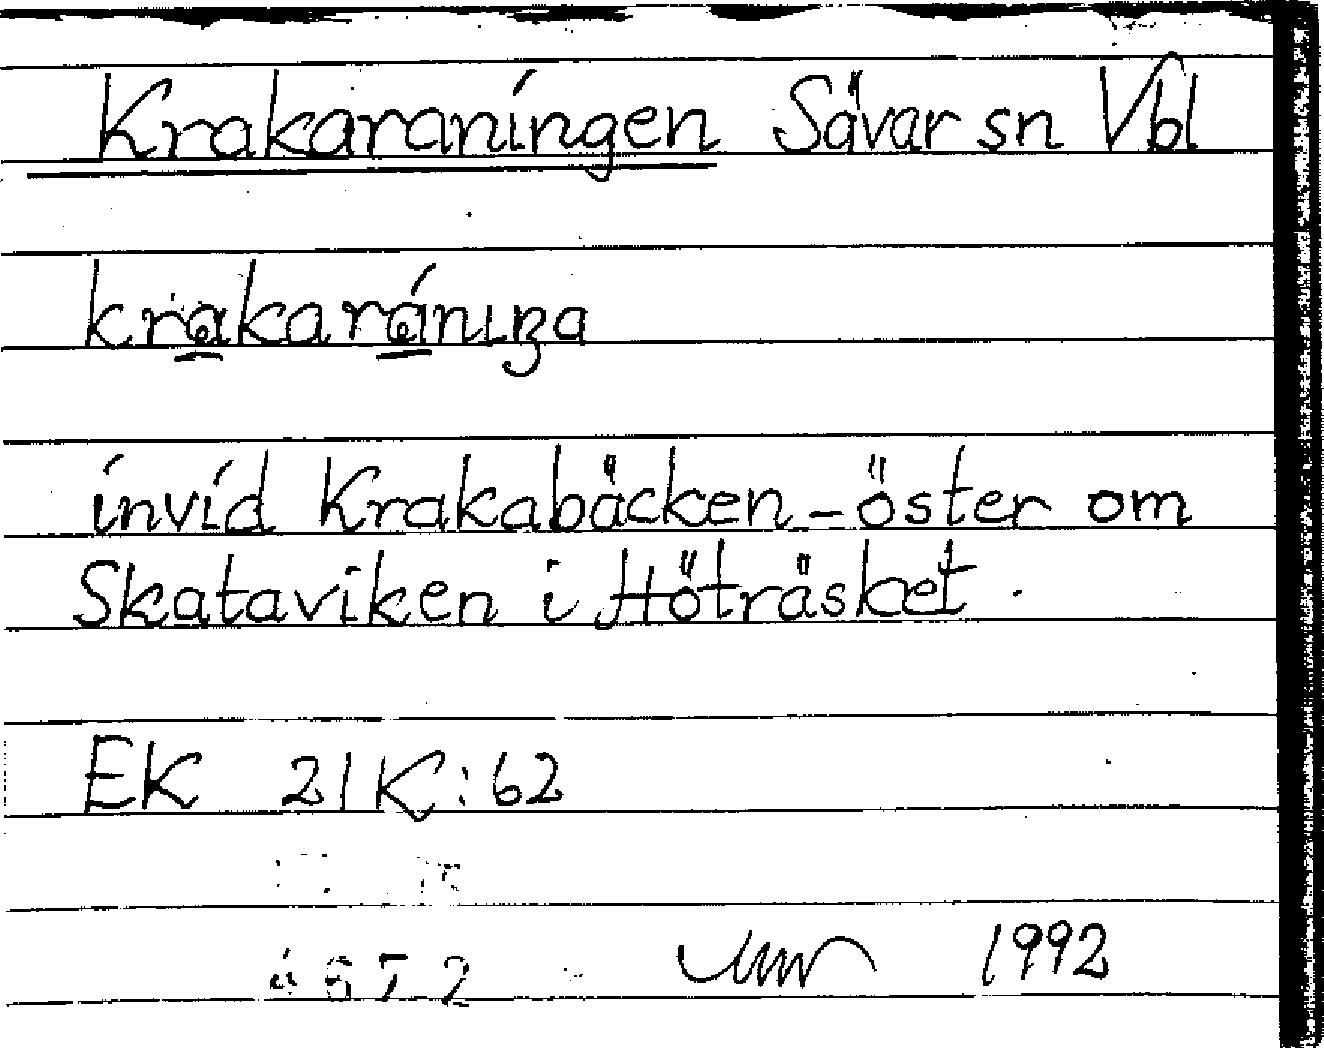 Krakaraningen Sävar sn Vbl
krakaránıŋa
invid Krakabäcken - öster om
Skataviken i Höträsket.
EK 21K:62
1992